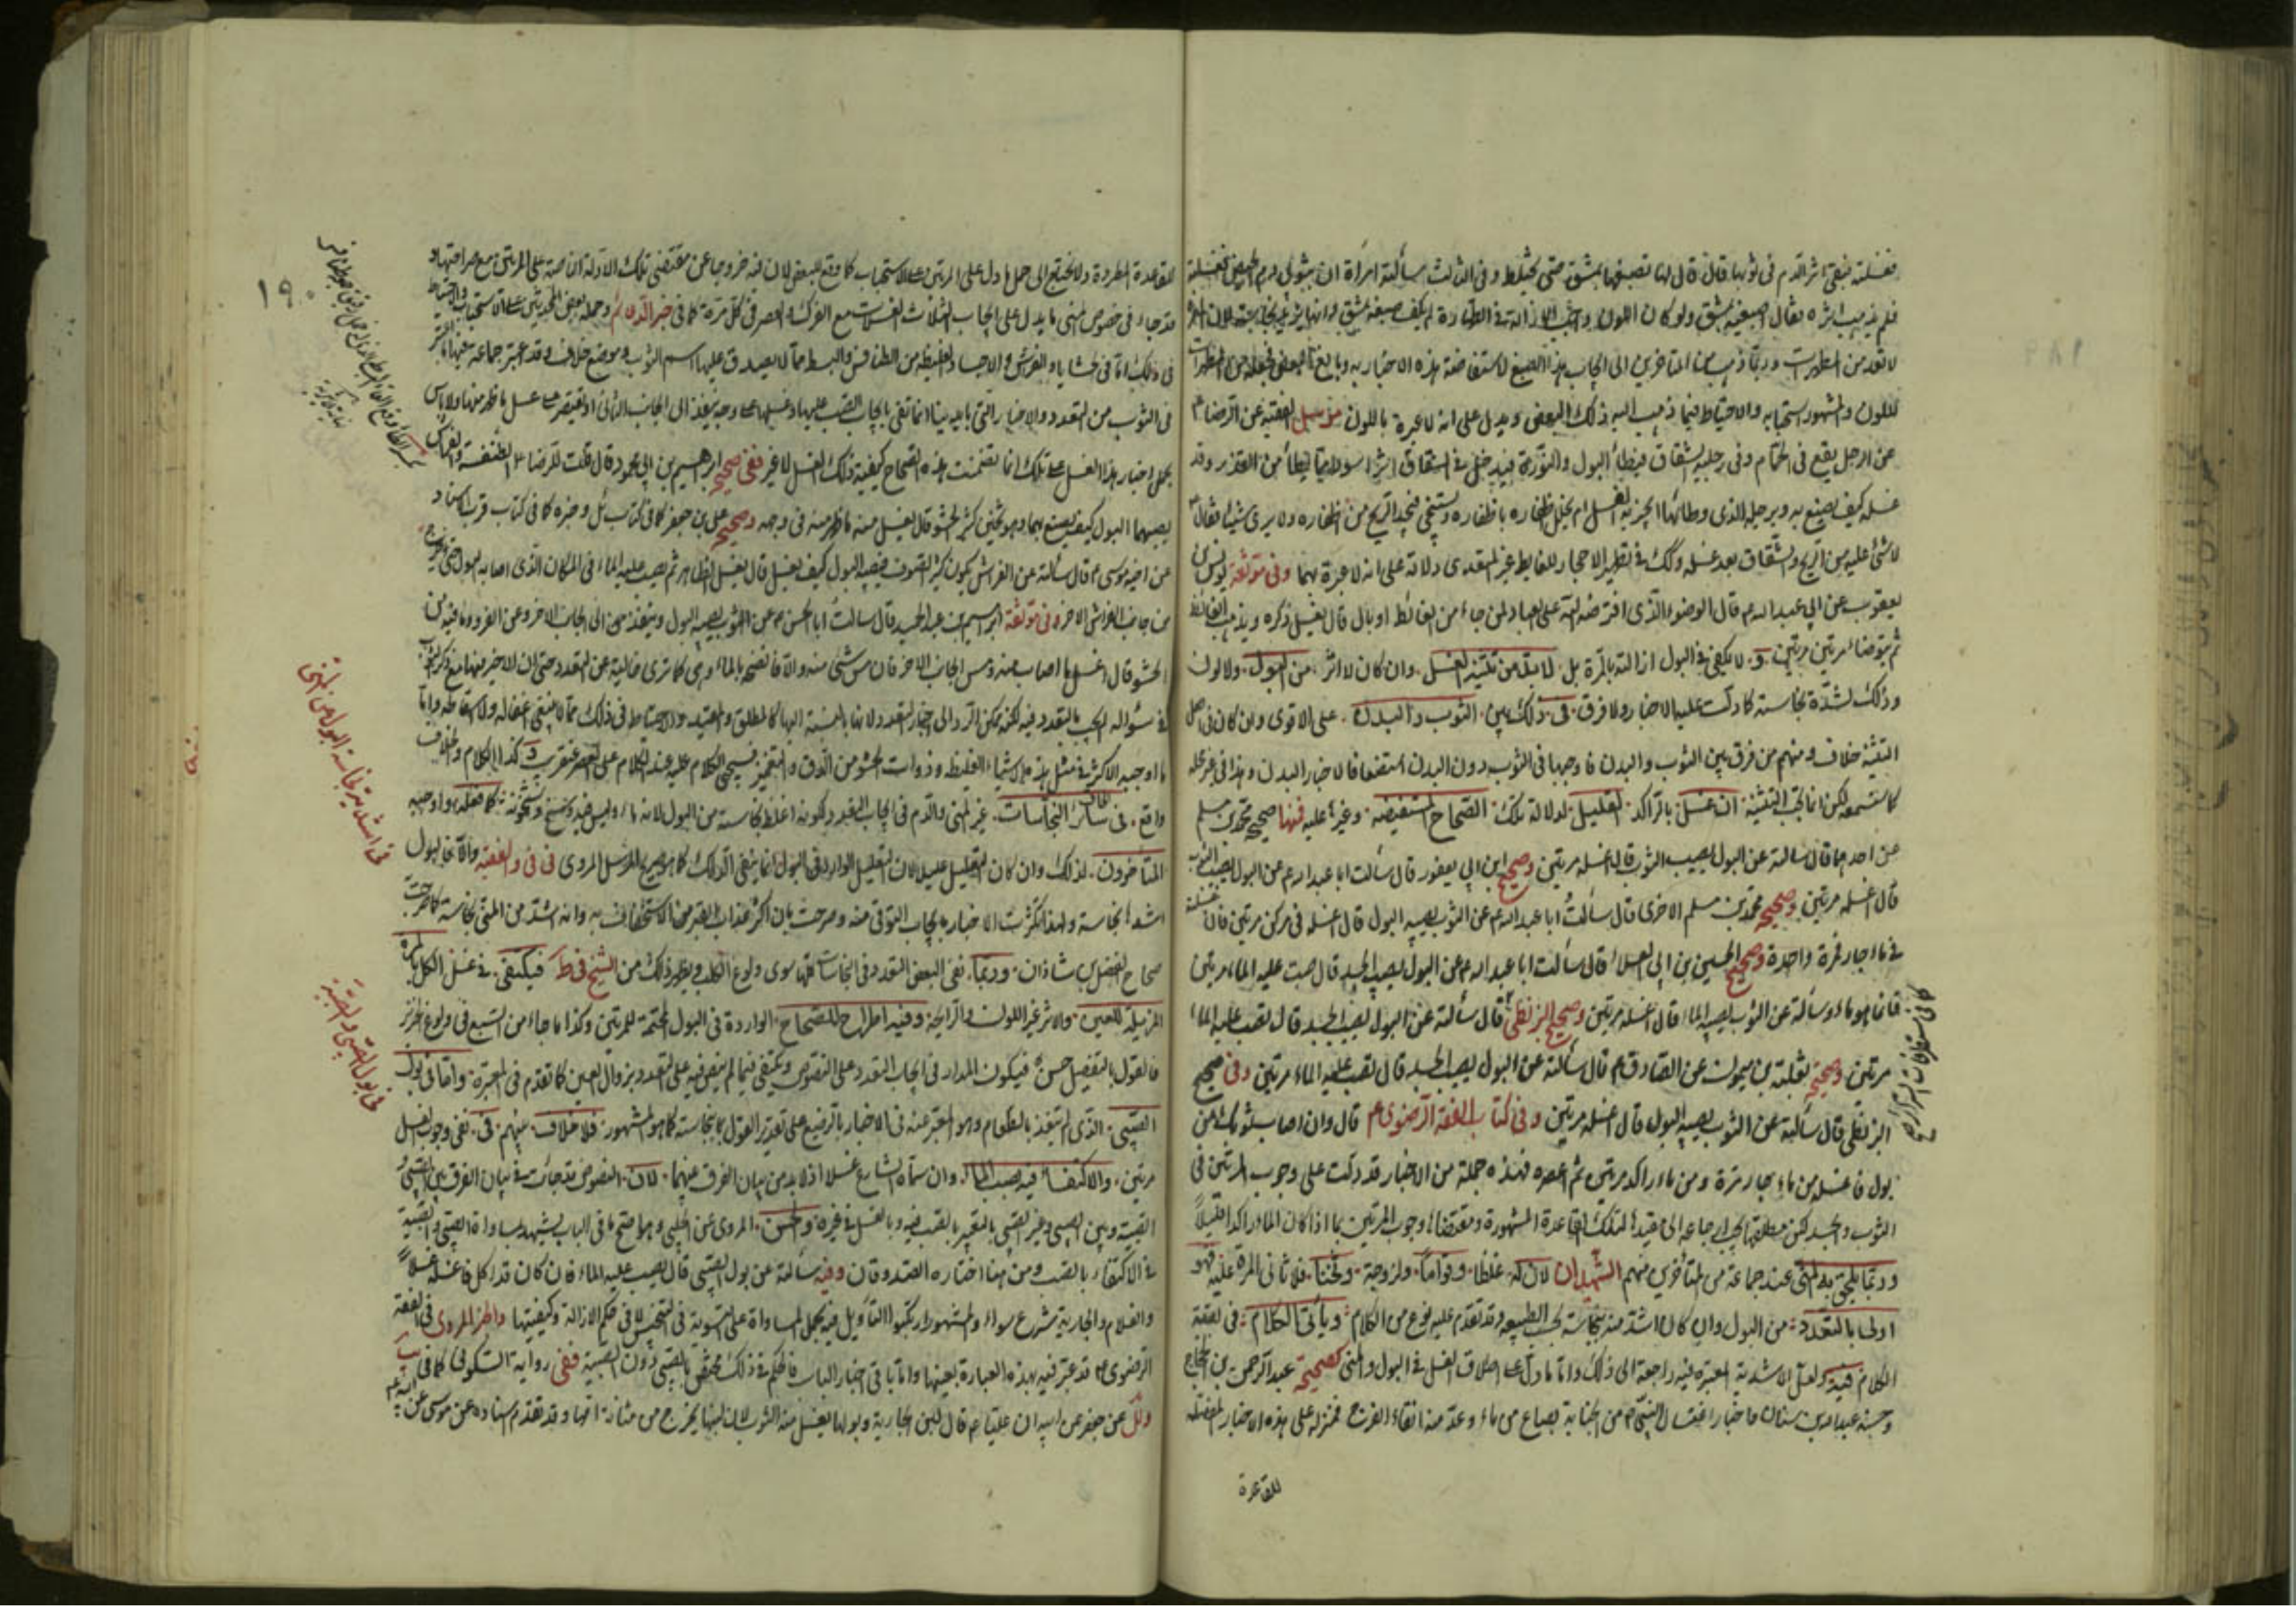 فغسلته فبقي اثر الدم في ثوبها قال قال لها تصبغها بمشق حتى يختلط وفي الثالث سألته امرأة ان بثوبي دم الحيض فغسلته
فلم يذهب اثره فقال اصبغيه بمشق ولو كان اللون واجب الازالة في الطهارة لم يكف صبغه بمشق
لا تعد من المطهرات وربما ذهب من المتاخرين الى ايجاب هذا الصبغ لاستفاضة هذه الاخبار به
للون والمشهور استحبابه والاحتياط فيما ذهب اليه ذلك البعض ويدل على انه لا عبرة باللون مرسل الفقيه عن الرضا ع
عن الرجل يقع في الحمام وفي رجليه الشقاق فيطأ البول والنورة فيدخل في الشقاق اثرا سودا مما يطأ من القذر وقد
غسله كيف يصنع به وبرجله الذي وطأ بها ايجزيه الغسل ام يخلل اظفاره باظفاره ويستنجي فيجد الريح من اظفاره ولا يرى شيئا فقال
لا شئ عليه من الريح والشقاق بعد غسله وكذلك في تطهير الاحجار للغايط غير المتعدي دلالة على انه لا عبرة بهما وفي موثقة يونس بن
يعقوب عن ابي عبد الله ع قال الوضوء الذي افترضه الله على العباد لمن جاء من الغائط او بال قال يغسل ذكره ويذهب الغائط
ثم يتوضأ مرتين مرتين و لا يكفي في البول ازالته بالمرة بل لا بد من تثنية الغسل وان كان لا اثر من البول ولا لون
وذلك لشدة نجاسته كما دلت عليه الاخبار ولا فرق في ذلك بين الثوب والبدن على الاقوى وان كان في اصل
التثنية خلاف ومنهم من فرق بين الثوب والبدن فاوجبها في الثوب دون البدن استضعافا لاخبار البدن وهذا في غير محله
كما ستسمعه لكن انما تجب التثنية ان غسل بالراكد القليل لدلالة تلك الصحاح المستفيضة وغيرها عليه فمنها صحيح محمد بن مسلم
عن احدهما قال سالته عن البول يصيب الثوب قال اغسله مرتين وصحيح ابن ابي يعفور قال سألت ابا عبد الله ع عن البول يصيب الثوب
قال اغسله مرتين وصحيحة محمد بن مسلم الاخرى قال سألت ابا عبد الله ع عن الثوب يصيبه البول قال اغسله في مركن مرتين فان غسلته
في ماء جار فمرة واحدة وصحيح الحسين بن ابي العلاء قال سألت ابا عبد الله ع عن البول يصيب الجسد قال صب عليه الماء مرتين
فانما هو ماء وسالته عن الثوب يصيبه البول قال اغسله مرتين وصحيح البزنطي قال سألته عن البول يصيب الجسد قال يصب عليه الماء
كما في مستطرفات السرائر
مرتين وصحيحة ثعلبة بن ميمون عن الصادق ع قال سألته عن البول يصيب الجسد قال يصب عليه الماء مرتين وفي صحيح
البزنطي قال سألته عن الثوب يصيبه البول قال اغسله مرتين وفي كتاب الفقه الرضوي ع قال وان اصاب ثوبك من
بول فاغسله من ماء جار مرة ومن ماء راكد مرتين ثم اعصره فهذه جملة من الاخبار قد دلت على وجوب المرتين في
الثوب والجسد لكن مطلقها يجب ارجاعه الى مقيدها لتلك القاعدة المشهورة ومقتضاها وجوب المرتين بما اذا كان الماء راكدا قليلا
وربما يلحق به المني عند جماعة من المتأخرين منهم الشهيدان لان له غلظا وقواما ولزوجة وثخنا فلا تأتي المرة عليه فهو
اولى بالتعدد من البول وان كان اشد منه نجاسة بحسب الطبيعة وقد تقدم عليه نوع من الكلام ويأتي الكلام في بقية
الكلام فيه ولعل الاشدية المعبرة فيه راجعة الى ذلك واما ما دل على اطلاق الغسل في البول والمني كصحيحة عبد الرحمن بن الحجاج
وحسنة عبد الله بن سنان فاخبار اغتسال النبي ص من الجنابة بصاع من ماء وعد منه انقاء الفرج فمنزلة على هذه الاخبار المفصلة
للقاعدة
١٩٠
للقاعدة المطردة ولا نحتاج الى حمل ما دل على المرتين على الاستحباب كما وقع للبعض لان فيه خروجا عن مقتضى تلك الادلة الناصة على المرتين مع صراحتها و
قد جاء في خصوص المني ما يدل على ايجاب الثلاث الغسلات مع الفرك والعصر في كل مرة كما في خبر الدعائم وحمله بعض المحدثين على الاستحباب والاحتياط
في ذلك اما في الحشايا والفرش والاجساد الغليظة من الطنافس والبسط مما لا يصدق عليها اسم الثوب فموضع خلاف وقد اعتبر جماعة فيها ما اعتبر
في الثوب من التعدد والاخبار التي بايدينا انما تفي بايجاب الصب عليها وغسلها على وجه ينفذ الى الجانب الثاني او يقتصر على غسل ما ظهر منها ولا باس
بحمل اخبار هذا الغسل على تلك انما تضمنت هذه الصحاح كيفية ذلك الغسل لا غير ففي صحيح ابرهيم بن ابي محمود قال قلت للرضا ع الطنفسة والفراش
يصيبهما البول كيف يصنع بهما وهو ثخين كثير الحشو قال يغسل منه ما ظهر منه في وجهه وصحيح علي بن جعفر كما في كتاب المسائل وخبره كما في كتاب قرب الاسناد
عن اخيه موسى ع قال سألته عن الفراش يكون كثير الصوف فيصيبه البول كيف يغسل قال يغسل الظاهر ثم يصب عليه الماء في المكان الذي اصابه البول حتى يخرج
من جانب الفراش الاخر وفي موثقة ابرهيم بن عبد الحميد قال سألت ابا الحسن ع عن الثوب يصيبه البول وينفذ من الى الجانب الاخر وعن الفرو وما فيه من
الحشو قال اغسل ما اصاب منه ومس الجانب الاخر فان مس شئ منه والا فانضحه بالماء وهي كما ترى خالية عن التعدد حتى ان الاخير منها مع ذكر الثوب
في سؤاله لم يجب بالتعدد فيه لكنه يمكن الرد الى اخبار التعدد لانها بالنسبة اليها كالمطلق والمقيد والاحتياط في ذلك مما لا ينبغي اغفاله ولا اسقاطه واما
ما اوجبه الاكثر في مثل هذه الاشياء الغليظة وذوات الحشو من الدق والتغميز فسيجئ الكلام عليه عند الكلام على العصر عن قريب و كذا الكلام والخلاف
واقع في سائر النجاسات غير المني والدم في ايجاب التعدد لكونه اغلظ نجاسة من البول لانه ماء وليس فيه وسخ وثخونة كما فعله واوجبه
المتأخرون لذلك وان كان التعليل عليلا لان التعليل الوارد في البول انما ينفي الدلك كما هو صريح المرسل المروي في في والفقيه والا فالبول
اشد نجاسة ولهذا تكثرت الاخبار بايجاب التوقي منه وصرحت بان اكثر عذاب القبر من الاستخفاف به وانه اشد من المني نجاسة كما صرحت
صحاح الفضل بن شاذان وربما نفى البعض التعدد في النجاسات كلها سوى ولوغ الكلب ويظهر ذلك من الشيخ في ط فيكتفي في غسل الكل بالمرة
المزيلة للعين والاثر غير اللون والرايحة وفيه اطراح للصحاح الواردة في البول المحتمة للمرتين وكذا ما جاء من السبع في ولوغ الخنزير
فالقول بالتفصيل حسن فيكون المدار في ايجاب التعدد على النصوص ويكتفى فيما لم ينص فيه على التعدد بزوال العين كما تقدم في المعتبرة واما في بول
الصبي الذي لم يتغذ بالطعام وهو المعبر عنه في الاخبار بالرضيع على تقدير القول بنجاسته كما هو المشهور فلا خلاف بينهم في نفي وجوب الغسل
مرتين والاكتفاء فيه بصب الماء وان سماه الشارع غسلا اذ لا بد من بيان الفرق بينهما لان النصوص قد جاءت في بيان الفرق بين الصبي و
الصبية وبين الصبي وغير الصبي بالتعبير بالصب فيه وبالغسل في غيره والحسن المروي عن الحلبي وهو اصح ما في الباب يشهد بمساواة الصبي والصبية
في الاكتفاء بالصب ومن هنا اختاره الصدوقان وفيه سألته عن بول الصبي قال يصب عليه الماء فان كان قد اكل فاغسله غسلا
والغلام والجارية شرع سواء والمشهور ارتكبوا التأويل فيه بحمل المساواة على التسوية في التنجيس لا في حكم الازالة وكيفيتها والخبر المروي في الفقه
الرضوي ع قد عبر فيه بهذه العبارة بعينها واما باقي اخبار الباب فالحكم في ذلك مختص بالصبي دون الصبية ففي رواية السكوني كما في يب
وئل عن جعفر عن ابيه ان عليا ع قال لبن الجارية وبولها يغسل منه الثوب لان لبنها يخرج من مثانة امها وقد تقدم اسناده عن موسى عن ابيه ع
في اشدية نجاسة البول من المني
في بول الصبي والصبية